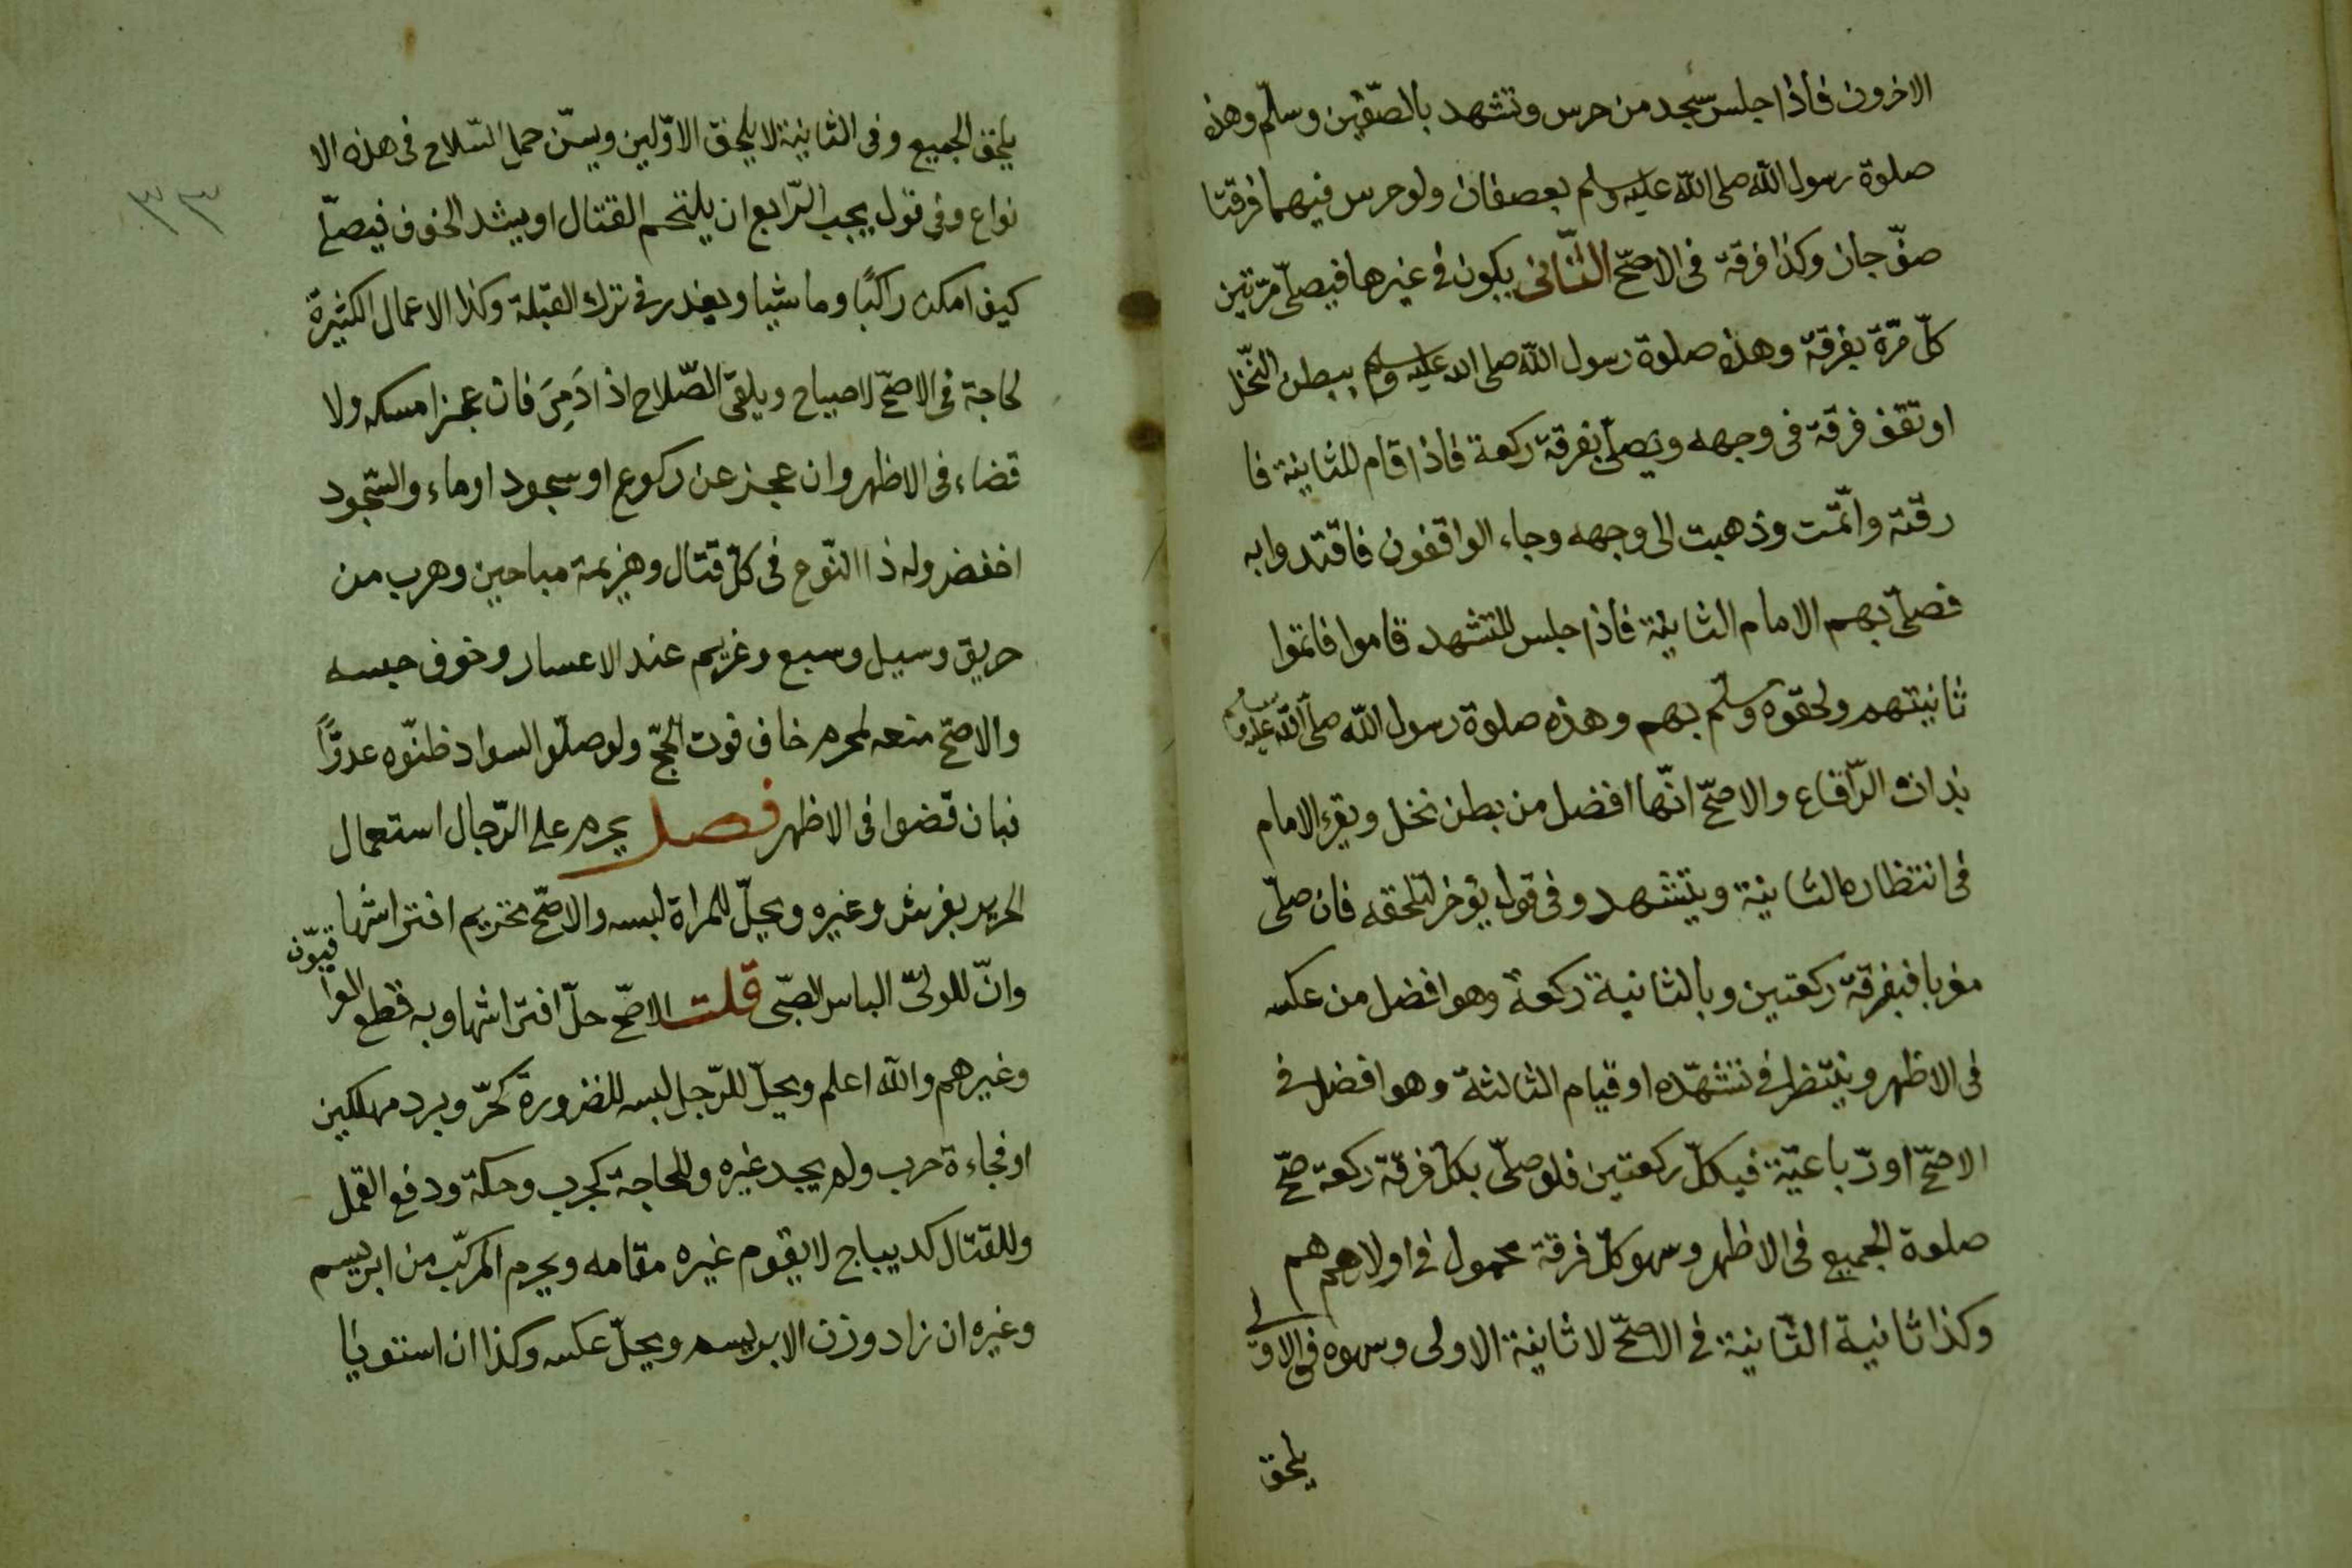 الاخرون فاذا جلس سجد من حرس وتشهد بالصّفين وسلّم وهذه
صلوة رسول الله صلى الله عليه وسلم بعصفان ولو حرس فيهما فرقتا
صفّ جاز وكذا فرقة فى الاصحّ الثّانى يكون فى غيرها فيصلّى مرّتين
كلّ مرّة بفرقة وهذه صلوة رسول الله صلى الله عليه وسلم ببطن النّخل
او تقف فرقة فى وجهه ويصلّى بفرقة ركعة فاذا قام للثانية فا
رقته واتمّت وذهبت الى وجهه وجاء الواقفون فاقتدوا به
فصلّى بهم الامام الثانية فاذا جلس للتشهد قاموا فاتموا
ثانيتهم ولحقوه وسلّم بهم وهذه صلوة رسول الله صلى الله عليه وسلم
بذات الرّقاع والاصحّ انّها افضل من بطن نخل ويقرء الامام
فى انتظاره الثانية ويتشهد وفى قول يؤخر لتلحقه فان صلّى
مغربا فبفرقة ركعتين وبالثانية ركعة وهو افضل من عكسه
فى الاظهر وينتظر فى تشهّده او قيام الثالثة وهو افضل فى
الاصحّ او رباعيّة فبكلّ ركعتين فلو صلّى بكلّ فرقة ركعة صحّ
صلوة الجميع فى الاظهر وسهو كلّ فرقة محمول فى اولاهم هم
وكذا ثانية الثّانية فى الاصحّ لا ثانية الاولى وسهوه فى الاولى
يلحق
يلحق الجميع وفى الثانية لا يلحق الاوّلين ويسنّ حمل السّلاح فى هذه الا
نواع وفى قول يجب الرّابع ان يلتحم القتال او يشد الخوف فيصلّى
كيف امكن راكبًا وماشيا ويعذر فى ترك القبلة وكذا الاعمال الكثيرة
لحاجة فى الاصحّ لا صياح ويلقى الصّلاح اذا دَمِىَ فان عجز امسكه ولا
قضاء فى الاظهر وان عجز عن ركوع او سجود اوماء والسّجود
اخفض وله ذا النّوع فى كلّ قتال وهزيمة مباحين وهرب من
حريق وسيل وسبع وغريم عند الاعسار وخوف حبسه
والاصحّ منعه لمحرم خاف فوت الحجّ ولو صلّوا لسواد ظنّوه عدوًّا
فبان قضوا فى الاظهر فصل يحرم على الرّجال استعمال
الحرير بفرش وغيره ويحلّ للمراة لبسه والاصحّ تحريم افتراشها
وانّ للولىّ الباس الصّبى قلت الاصحّ حلّ افتراشها وبه قطع العرا
قيّون
وغيرهم والله اعلم ويحلّ للرّجل لبسه للضرورة كحرّ وبرد مهلكين
او فجاءة حرب ولم يجد غيره وللحاجة كجرب وحكة ودفع القمل
وللقتال كديباج لا يقوم غيره مقامه ويحرم المركّب من ابريسم
وغيره ان زاد وزن الابريسم ويحلّ عكسه وكذا ان استويا
٣٣